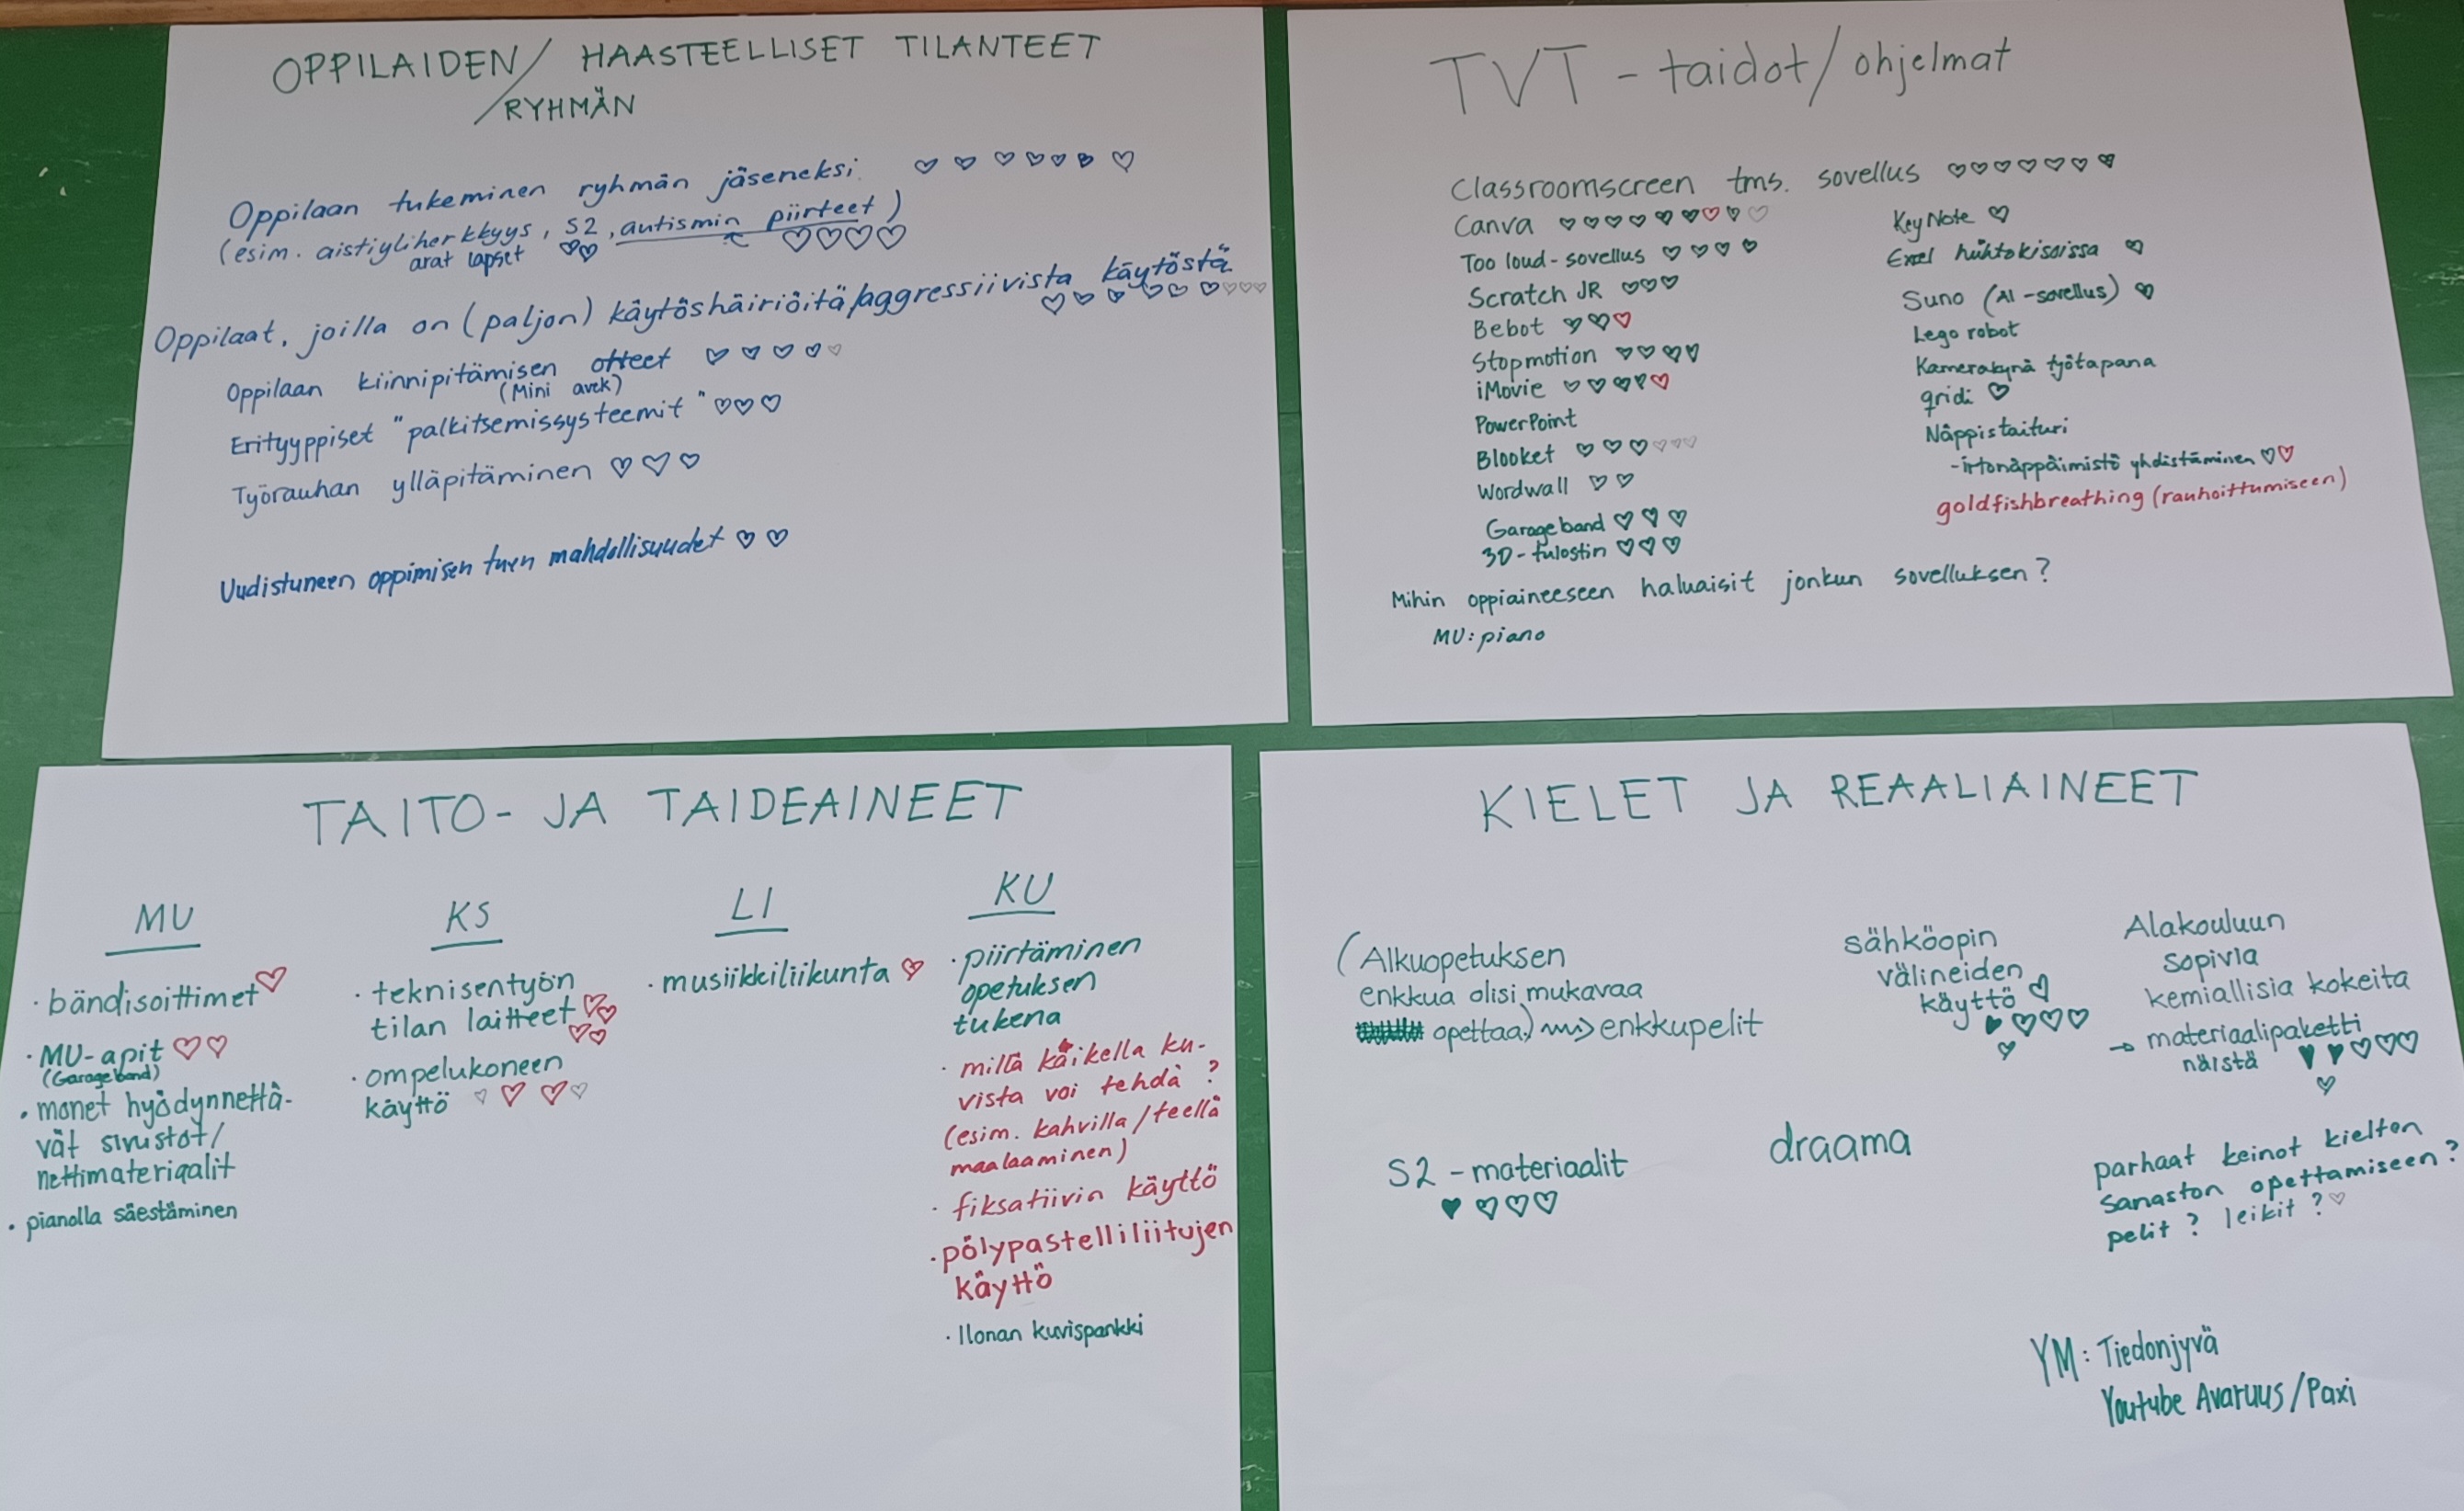 OPPILAIDEN/ HAASTEELLISET TILANTEET
/RYHMÄN
Oppilaan tukeminen ryhmän jäseneksi. ♡ ♡ ♡ ♡ ♡ ♡ ♡
(esim. aistiyliherkkyys, S2, autismin piirteet)
arat lapset ♡♡ ♡♡♡♡
Oppilaat, joilla on (paljon) käytöshäiriöitä/aggressiivista käytöstä
♡ ♡ ♡ ♡ ♡ ♡ ♡ ♡ ♡
Oppilaan kiinnipitämisen otteet ♡ ♡ ♡ ♡ ♡
(Mini avek)
Erityyppiset "palkitsemissysteemit" ♡♡♡
Työrauhan ylläpitäminen ♡ ♡ ♡
Uudistuneen oppimisen tuen mahdollisuudet ♡ ♡
TVT - taidot/ohjelmat
Classroomscreen tms. sovellus ♡♡♡♡♡♡♡
Canva ♡ ♡ ♡ ♡ ♡ ♡ ♡ ♡ ♡
Too loud - sovellus ♡ ♡ ♡ ♡
Scratch JR ♡♡♡
Bebot ♡♡♡
Stopmotion ♡♡♡♡
iMovie ♡ ♡ ♡ ♡ ♡
PowerPoint
Blooket ♡ ♡ ♡ ♡ ♡ ♡
Wordwall ♡ ♡
Garageband ♡ ♡ ♡
3D-tulostin ♡ ♡ ♡
KeyNote ♡
Exel hiihtokisoissa ♡
Suno (AI -sovellus) ♡
Lego robot
Kamerakynä työtapana
gridi ♡
Näppistaituri
-irtonäppäimistö yhdistäminen ♡♡
goldfishbreathing (rauhoittumiseen)
Mihin oppiaineeseen haluaisit jonkun sovelluksen?
MU: piano
TAITO- JA TAIDEAINEET
MU
· bändisoittimet ♡
· MU-apit ♡♡
(Garageband)
· monet hyödynnettä-
vät sivustot/
nettimateriaalit
· pianolla säestäminen
KS
· teknisentyön
tilan laitteet ♡♡
♡♡
· ompelukoneen
käyttö ♡ ♡ ♡ ♡
LI
· musiikkiliikunta ♡
KU
· piirtäminen
opetuksen
tukena
· millä kaikella ku-
vista voi tehdä?
(esim. kahvilla/teellä
maalaaminen)
· fiksatiivin käyttö
· pölypastelliliitujen
käyttö
· Ilonan kuvispankki
KIELET JA REAALIAINEET
(Alkuopetuksen
enkkua olisi mukavaa
opettaa.) → enkkupelit
sähköopin
välineiden
käyttö ♡
♥♡♡♡
♡
Alakouluun
sopivia
kemiallisia kokeita
→ materiaalipaketti
näistä ♥♥♡♡♡
♡
S2 - materiaalit
♥ ♡♡♡
draama
parhaat keinot kielten
sanaston opettamiseen?
pelit? leikit? ♡
YM: Tiedonjyvä
Youtube Avaruus/Paxi